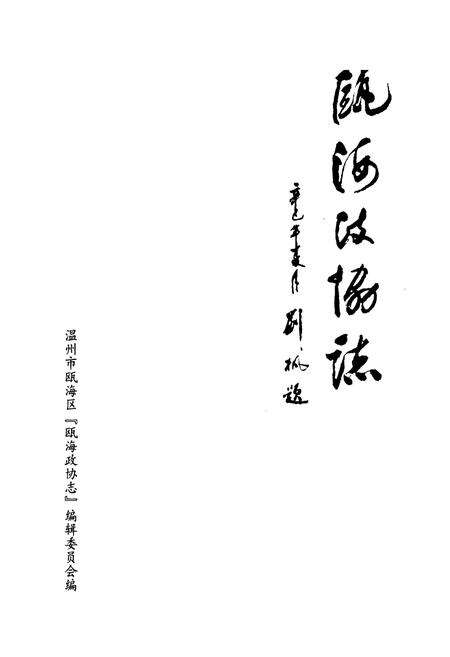 瓯海政协誌
辛巳年春月刘枫题
温州市瓯海区『瓯海政协志』编辑委员会编